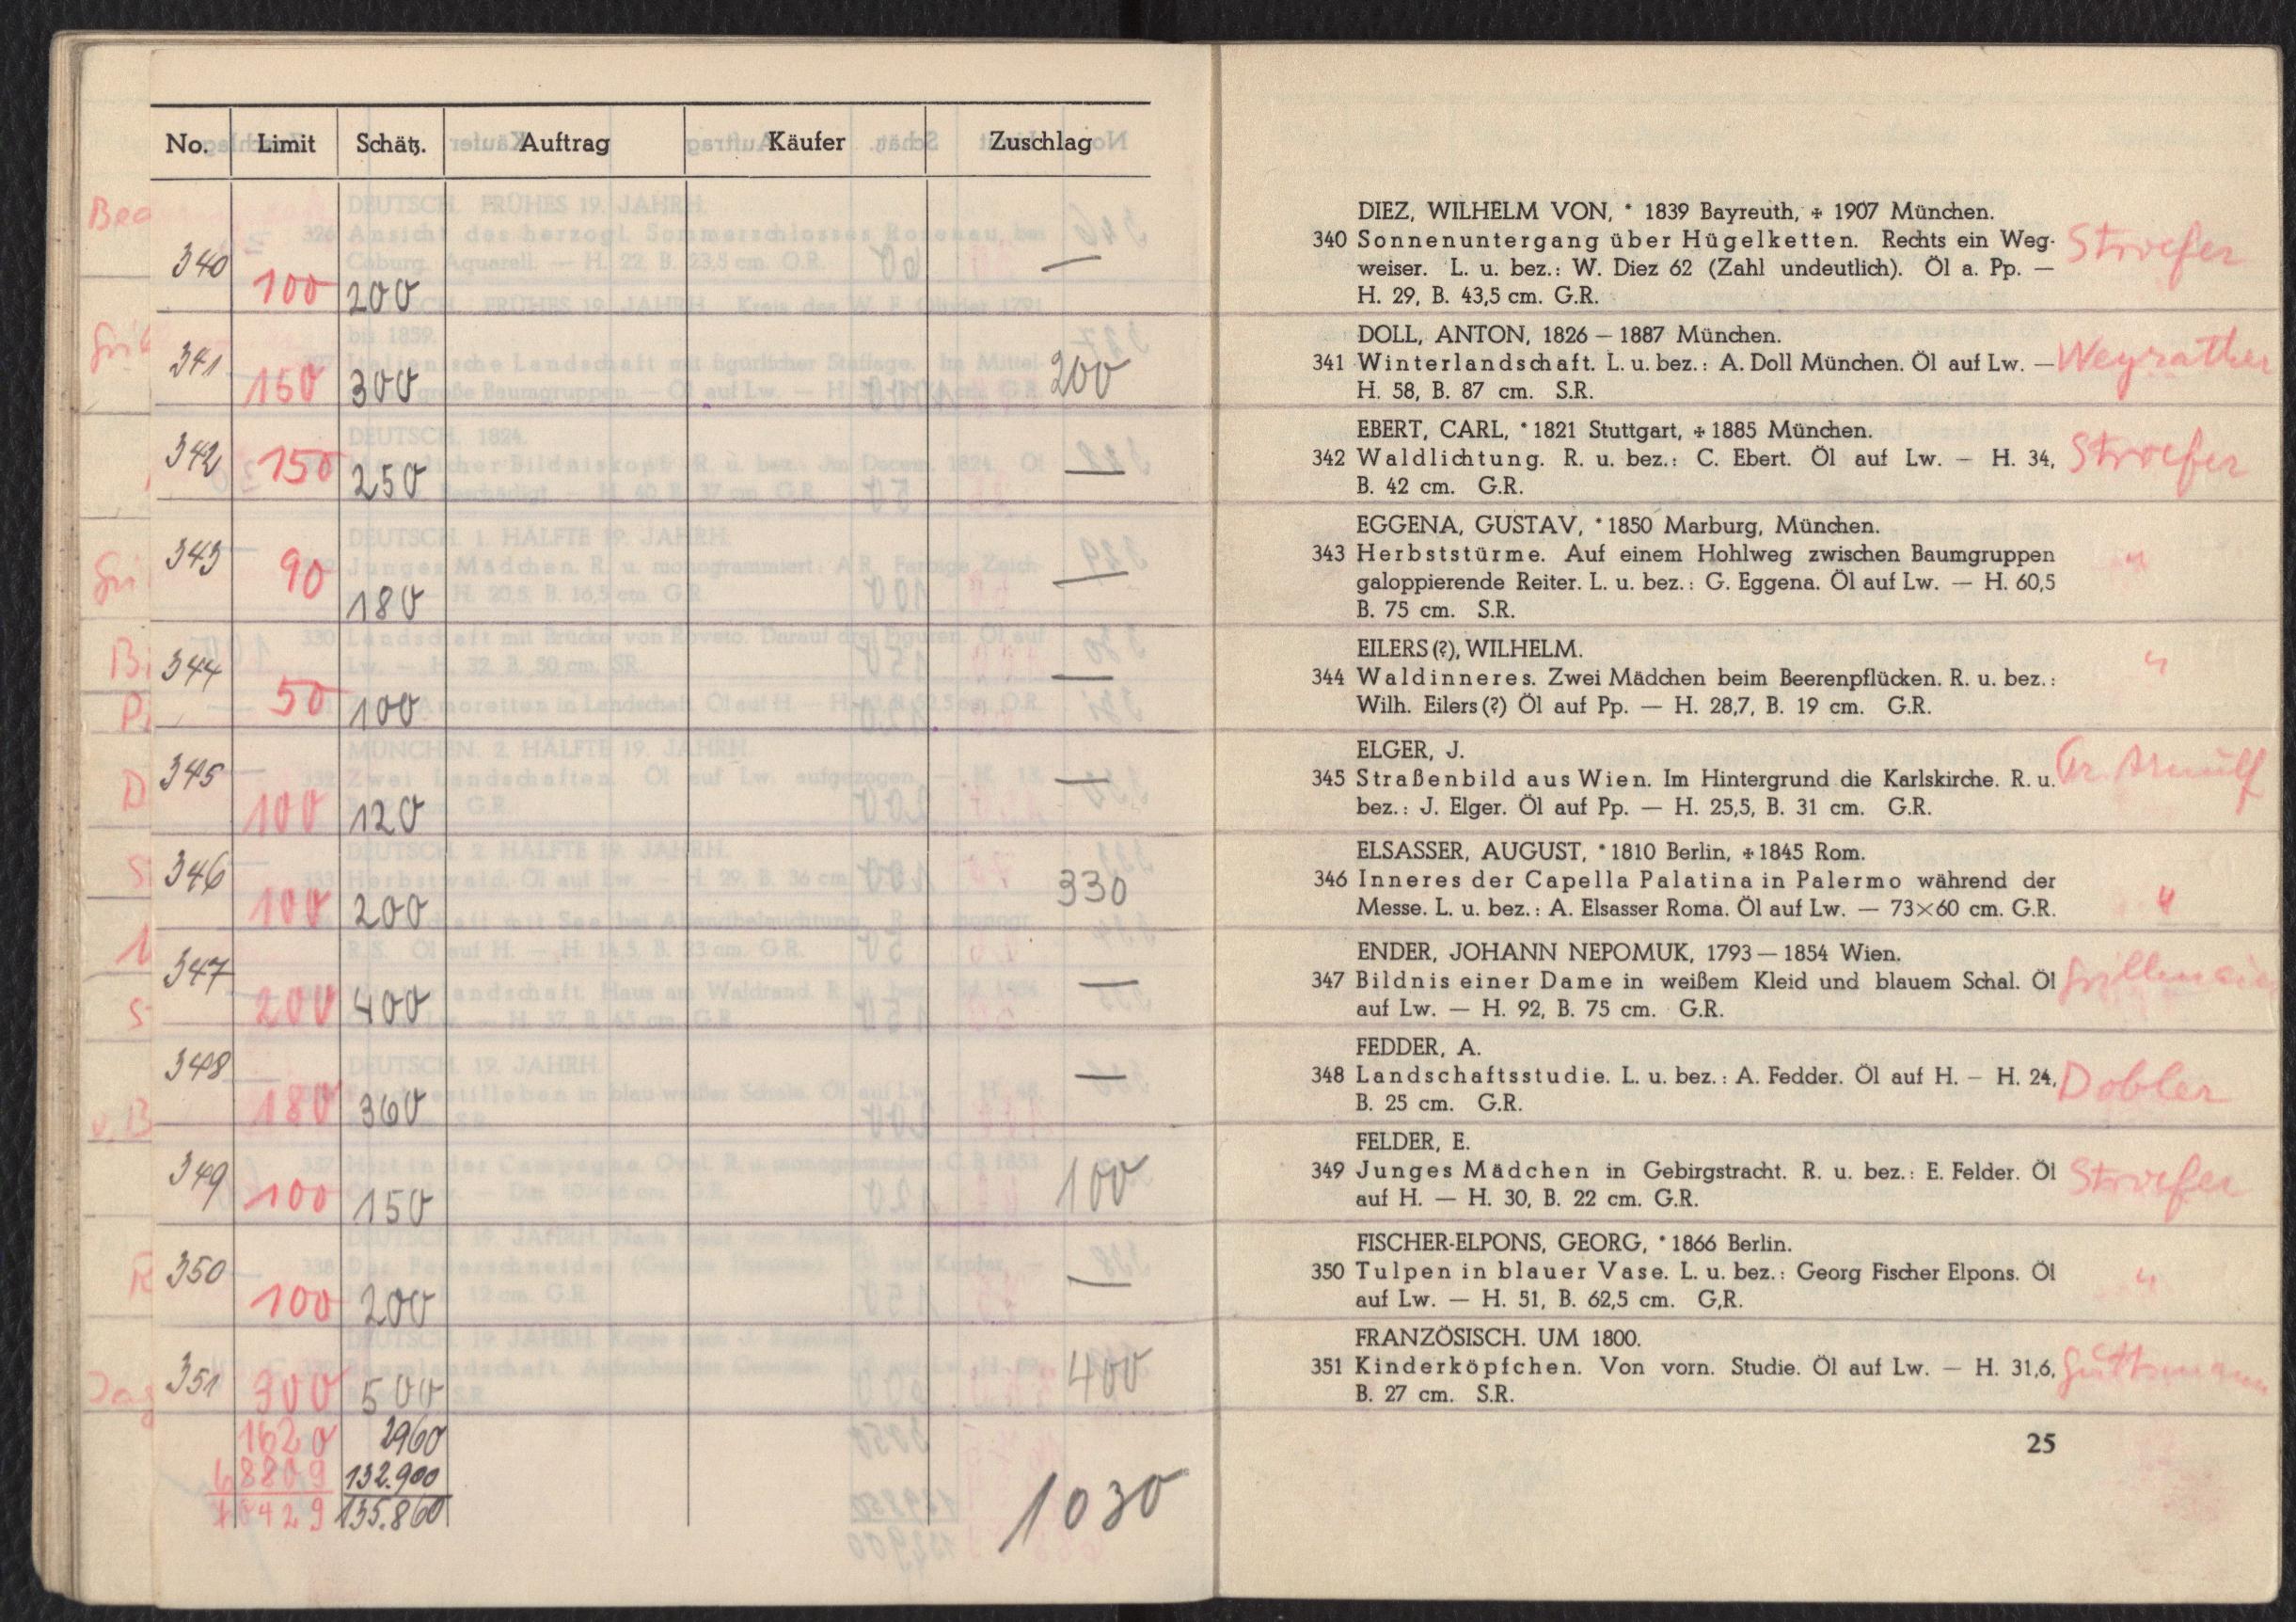 No. Limit Schätz. Auftrag Käufer Zuschlag
340 100 200 —
341 150 300 200
342 150 250 —
343 90 180 —
344 50 100 —
345 100 120 —
346 100 200 330
347 200 400 —
348 180 360 —
349 100 150 100
350 100 200 —
351 300 500 400
1620 2960
68809 132.900
70429 135.860
1030
DIEZ, WILHELM VON, * 1839 Bayreuth, + 1907 München.
340 Sonnenuntergang über Hügelketten. Rechts ein Weg- Stroefer
weiser. L. u. bez.: W. Diez 62 (Zahl undeutlich). Öl a. Pp. —
H. 29, B. 43,5 cm. G.R.
DOLL, ANTON, 1826 – 1887 München.
341 Winterlandschaft. L. u. bez.: A. Doll München. Öl auf Lw. — Weyrather
H. 58, B. 87 cm. S.R.
EBERT, CARL, * 1821 Stuttgart, + 1885 München.
342 Waldlichtung. R. u. bez.: C. Ebert. Öl auf Lw. — H. 34, Stroefer
B. 42 cm. G.R.
EGGENA, GUSTAV, * 1850 Marburg, München.
343 Herbststürme. Auf einem Hohlweg zwischen Baumgruppen "
galoppierende Reiter. L. u. bez.: G. Eggena. Öl auf Lw. — H. 60,5
B. 75 cm. S.R.
EILERS (?), WILHELM.
344 Waldinneres. Zwei Mädchen beim Beerenpflücken. R. u. bez.: "
Wilh. Eilers (?) Öl auf Pp. — H. 28,7, B. 19 cm. G.R.
ELGER, J.
345 Straßenbild aus Wien. Im Hintergrund die Karlskirche. R. u. Gr. Arnulf
bez.: J. Elger. Öl auf Pp. — H. 25,5, B. 31 cm. G.R.
ELSASSER, AUGUST, * 1810 Berlin, + 1845 Rom.
346 Inneres der Capella Palatina in Palermo während der
Messe. L. u. bez.: A. Elsasser Roma. Öl auf Lw. — 73×60 cm. G.R. "
ENDER, JOHANN NEPOMUK, 1793 — 1854 Wien.
347 Bildnis einer Dame in weißem Kleid und blauem Schal. Öl
auf Lw. — H. 92, B. 75 cm. G.R.
FEDDER, A.
348 Landschaftsstudie. L. u. bez.: A. Fedder. Öl auf H. – H. 24, Dobler
B. 25 cm. G.R.
FELDER, E.
349 Junges Mädchen in Gebirgstracht. R. u. bez.: E. Felder. Öl Stroefer
auf H. — H. 30, B. 22 cm. G.R.
FISCHER-ELPONS, GEORG, * 1866 Berlin.
350 Tulpen in blauer Vase. L. u. bez.: Georg Fischer Elpons. Öl "
auf Lw. — H. 51, B. 62,5 cm. G,R.
FRANZÖSISCH. UM 1800.
351 Kinderköpfchen. Von vorn. Studie. Öl auf Lw. — H. 31,6,
B. 27 cm. S.R.
25